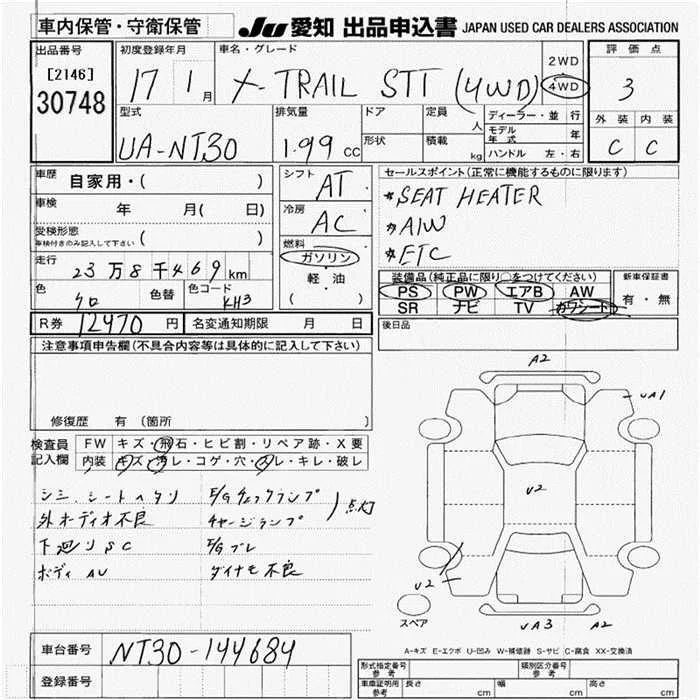 車内保管・守衛保管 JU 愛知 出品申込書 JAPAN USED CAR DEALERS ASSOCIATION
出品番号 初度登録年月 車名・グレード 2WD 評価点
[2146] 17 1月 X-TRAIL STT (4WD) 4WD 3
30748 型式 排気量 ドア 定員 人 ディーラー・並行 外装 内装
UA-NT30 1.99 CC 形状 積載 kg モデル年式 年 C C
ハンドル 左・右
車歴 自家用・( ) シフト AT セールスポイント(正常に機能するものに限ります)
車検 年 月( 日) 冷房 AC *SEAT HEATER
受検形態 ( ) *A/W
車検付きのみ記入して下さい 燃料 *ETC
走行 23万8千469km ガソリン 装備品(純正品に限り○をつけてください) 新車保証書
色 クロ 色替 色コード KH3 軽・油 PS PW エアB AW 有・無
( ) SR ナビ TV カワシート
R券 12470 円 名変通知期限 月 日 後日品
注意事項申告欄(不具合内容等は具体的に記入して下さい)
修復歴 有(箇所
検査員 FW キズ・飛石・ヒビ割・リペア跡・X要
記入欄 内装 キズ・汚レ・コゲ・穴・スレ・キレ・破レ
シミ、シートヘタリ E/Gチェックランプ
外オーディオ不良 チャージランプ 点灯
下廻リSC E/Gブレ
ボディAU ダイナモ不良
A2
UA1
U2
U2
スペア UA3 A2
A-キズ E-エクボ U-凹み W-補修跡 S-サビ C-腐食 XX-交換済
車台番号 NT30-144684
登録番号
形式指定番号 参考 類別区分番号 参考
車庫証明用 参考 長さ cm 幅 cm 高さ cm